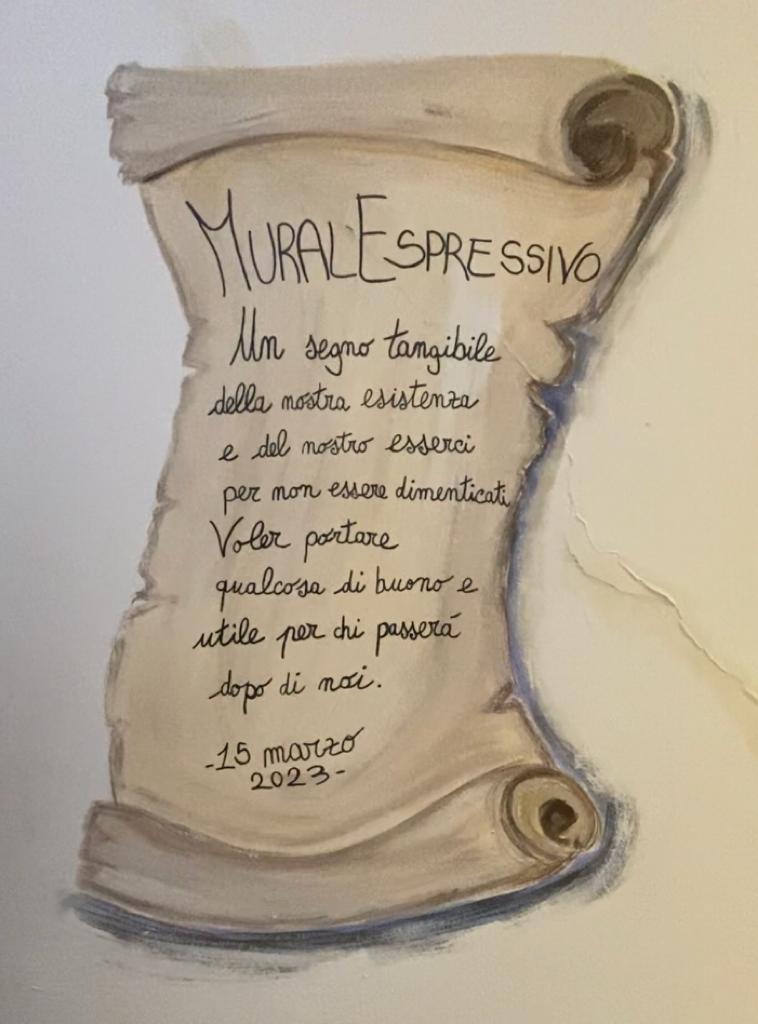 MURALESPRESSIVO
Un segno tangibile
della nostra esistenza
e del nostro esserci
per non essere dimenticati
Voler portare
qualcosa di buono e
utile per chi passerá
dopo di noi.
-15 marzo
2023-